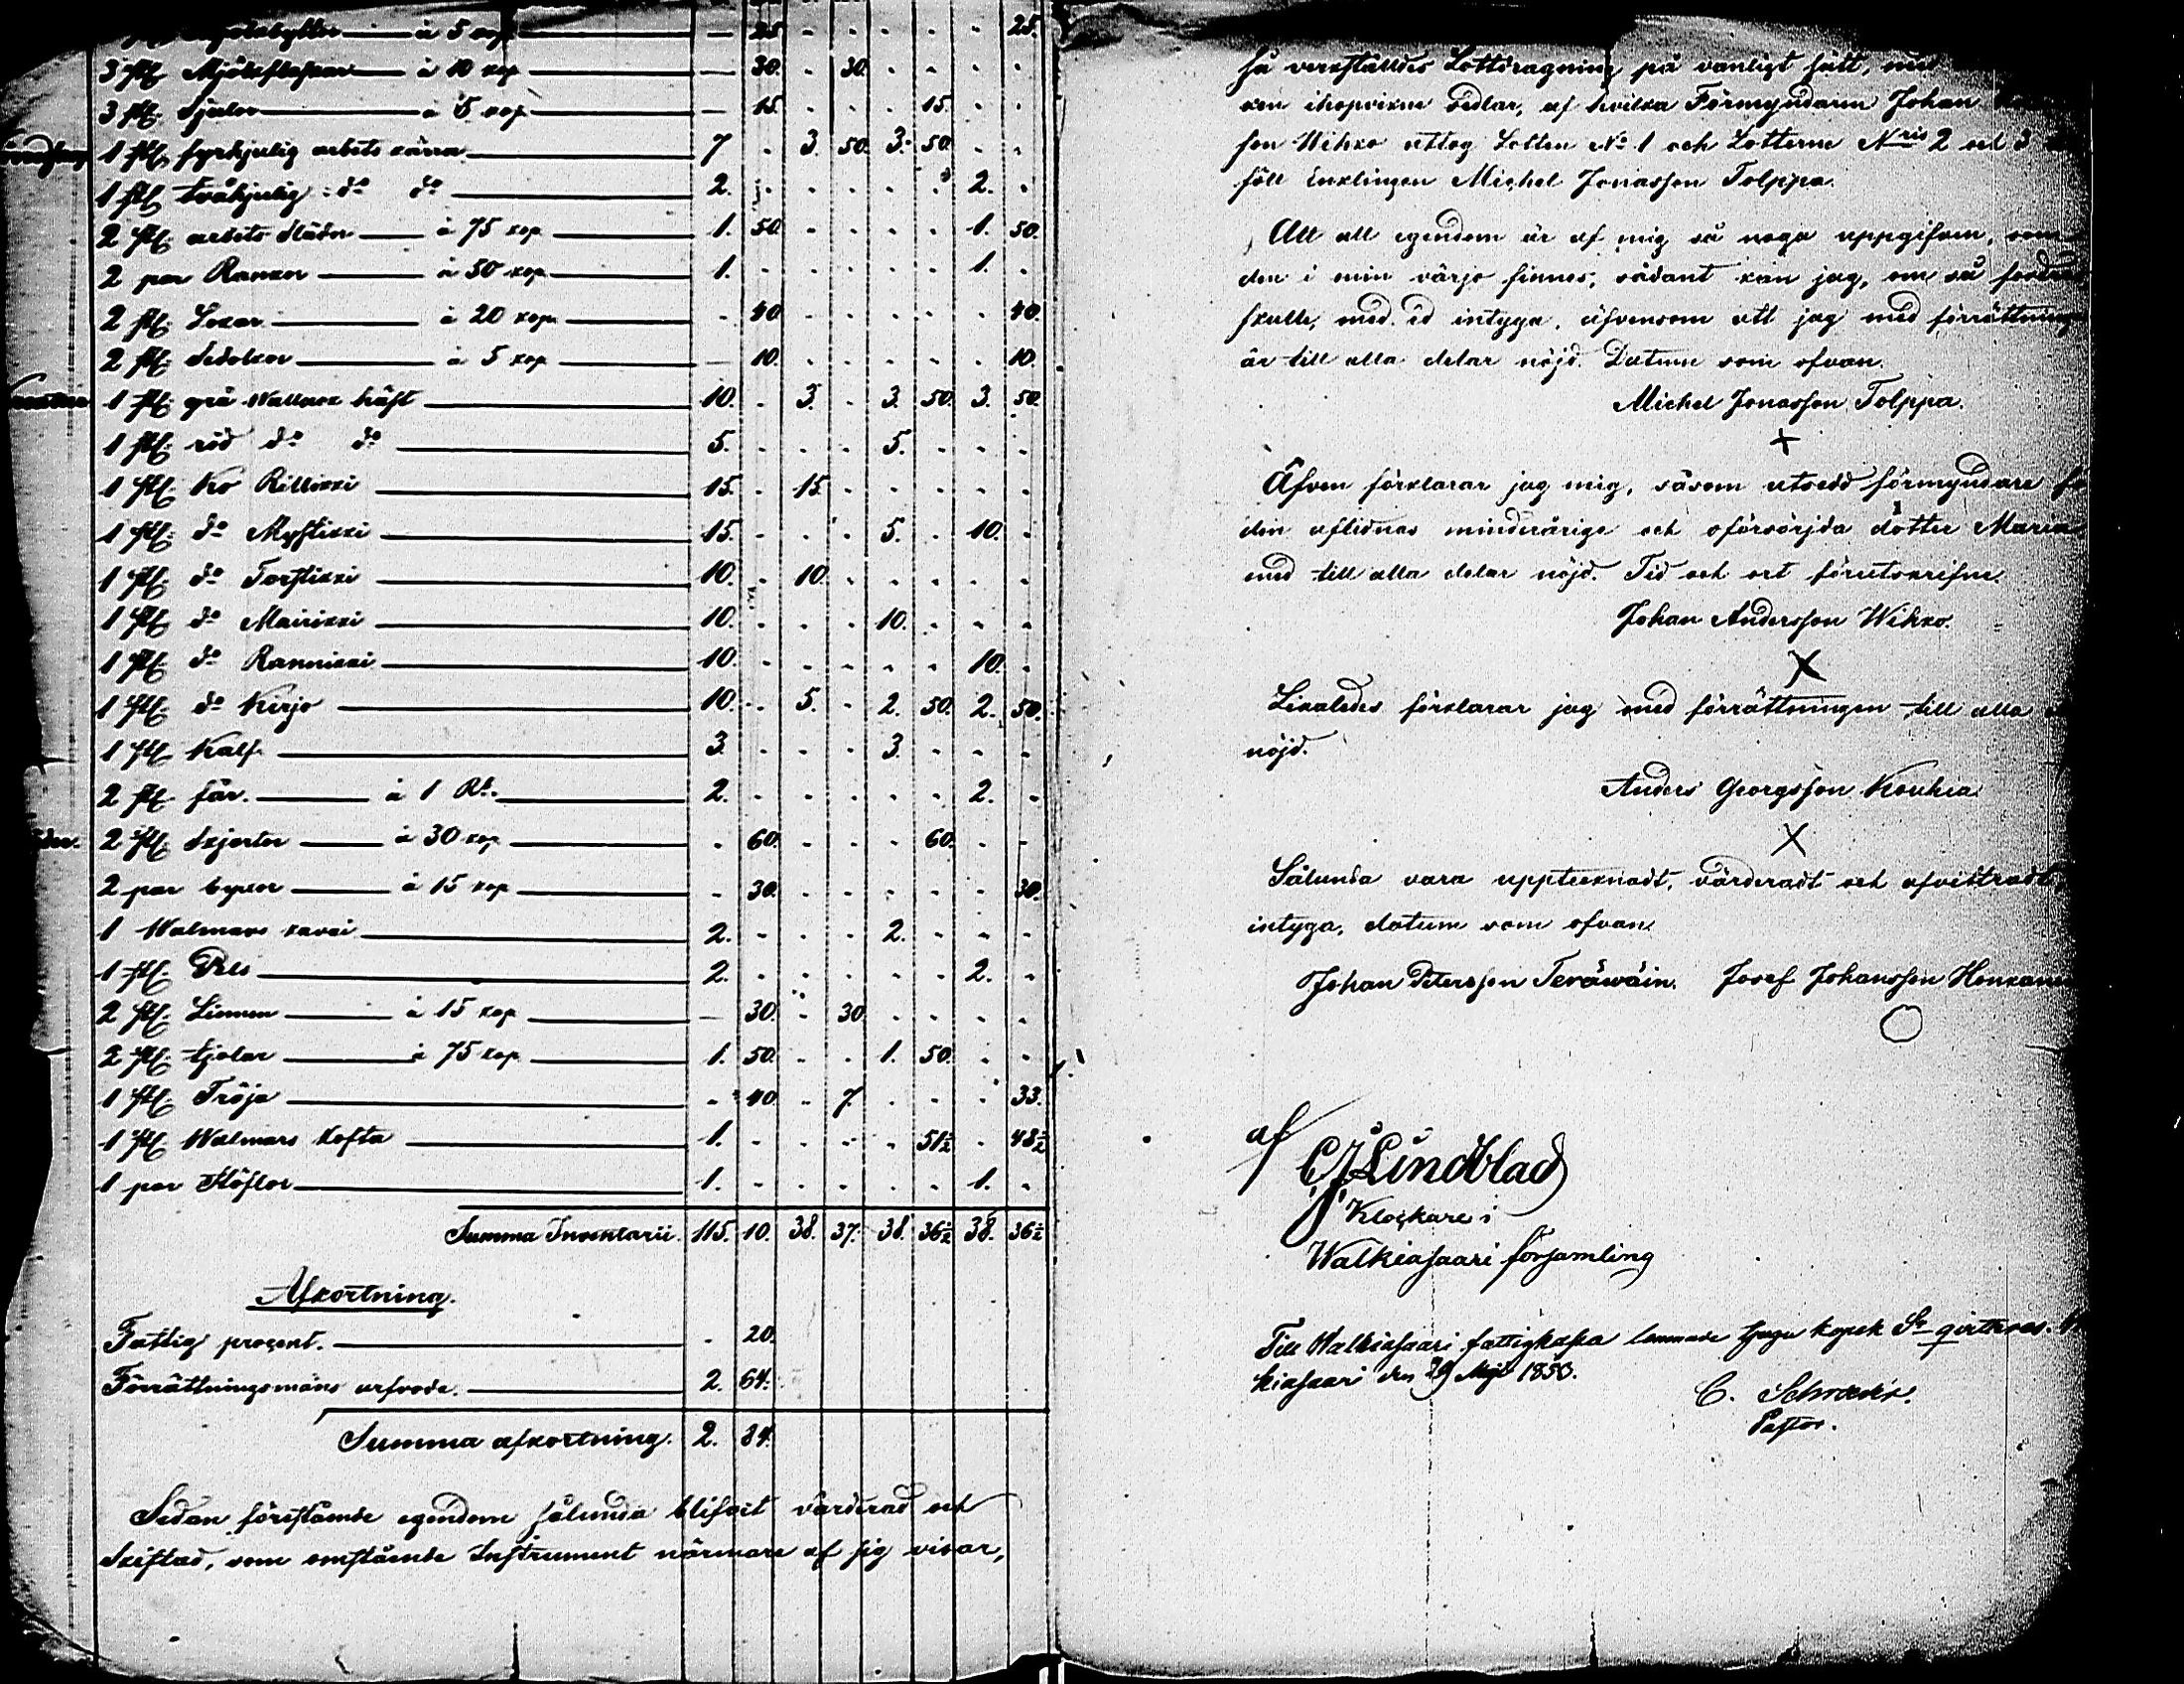 à 5 kop — 25. 25.
3 st. Mjölkflaskor à 10 kop — 30. 30.
3 st. à 5 kop — 15. 15.
1 st. fyrhjulig arbets kärra 7. 3. 50. 3. 50.
1 st. tvåhjulig do do 2. 2.
2 st. arbets slädor à 75 kop 1. 50. 1. 50.
2 par Rankor à 50 kop 1. 1.
2 st. Lokor à 20 kop 40. 40.
2 st. Sedolkor à 5 kop — 10. 10.
1 st. grå Wallack häst 10. 3. 3. 50. 3. 50.
1 st. röd do do 5. 5.
1 st. Ko Rillikki 15. 15.
1 st. do Mystikki 15. 5. 10.
1 st. do Torstikki 10. 10.
1 st. do Mairikki 10. 10.
1 st. do Rannikki 10. 10.
1 st. do Kirjo 10. 5. 2. 50. 2. 50.
1 st. Kalf 3. 3.
2 st. får. à 1 Rb. 2. 2.
2 st. Skjortor à 30 kop 60. 60.
2 par byxor à 15 kop 30. 30.
1 Walmars kavai 2. 2.
1 st. Pels 2. 2.
2 st. Linnen à 15 kop — 30. 30.
2 st. kjolar à 75 kop 1. 50. 1. 50.
1 st. Tröja 40. 7. 33.
1 st. Walmars kofta 1. 51½ 48½
1 par Stöflor 1. 1.
Summa Inventarii. 115. 10. 38. 37. 38. 36½ 38. 36½
Afkortning.
Fattig procent. 20.
Förrättningsmäns arfvode. 2. 64.
Summa afkortning. 2. 84.
Sedan förestående egendom sålunda blifvit värderad och
Skiftad, som omstående Instrument närmare af sig visar,
så verkställdes Lottdragning på vanligt sätt,
ihopvikna sedlar, af hvilka Förmyndaren Johan
son Wihko uttog Lotten No 1 och Lotterne Nris 2 och 3
föll Enklingen Michel Jonasson Tolppa.
Att all egendom är af mig så noga uppgifven, som
den i min värjo finnes, sådant kan jag, om så
skulle, med ed intyga, äfvensom att jag med förrättninge
är till alla delar nöjd. Datum som ofvan.
Michel Jonasson Tolppa.
Äfven förklarar jag mig, såsom utsedd förmyndare
den aflidnas minderåriga och oförsörjda dotter Maria
med till alla delar nöjd. Tid och ort förutskrifne.
Johan Andersson Wihko.
Likaledes förklarar jag med förrättningen till alla
nöjd.
Anders Georgsson Koukia
Sålunda vara uppteknadt, värderadt och afvittradt
intyga, datum som ofvan.
Johan Petersson Teräwäin. Josef Johansson Honkane
af
C J Lindblad
Klockare i
Walkeasaari församling
Till Walkeasaari fattigkassa lemnade tjugu kopek Sr qvitteras.
kiasaari den 29 Maji 1850.
C. Schroeder.
Pastor.